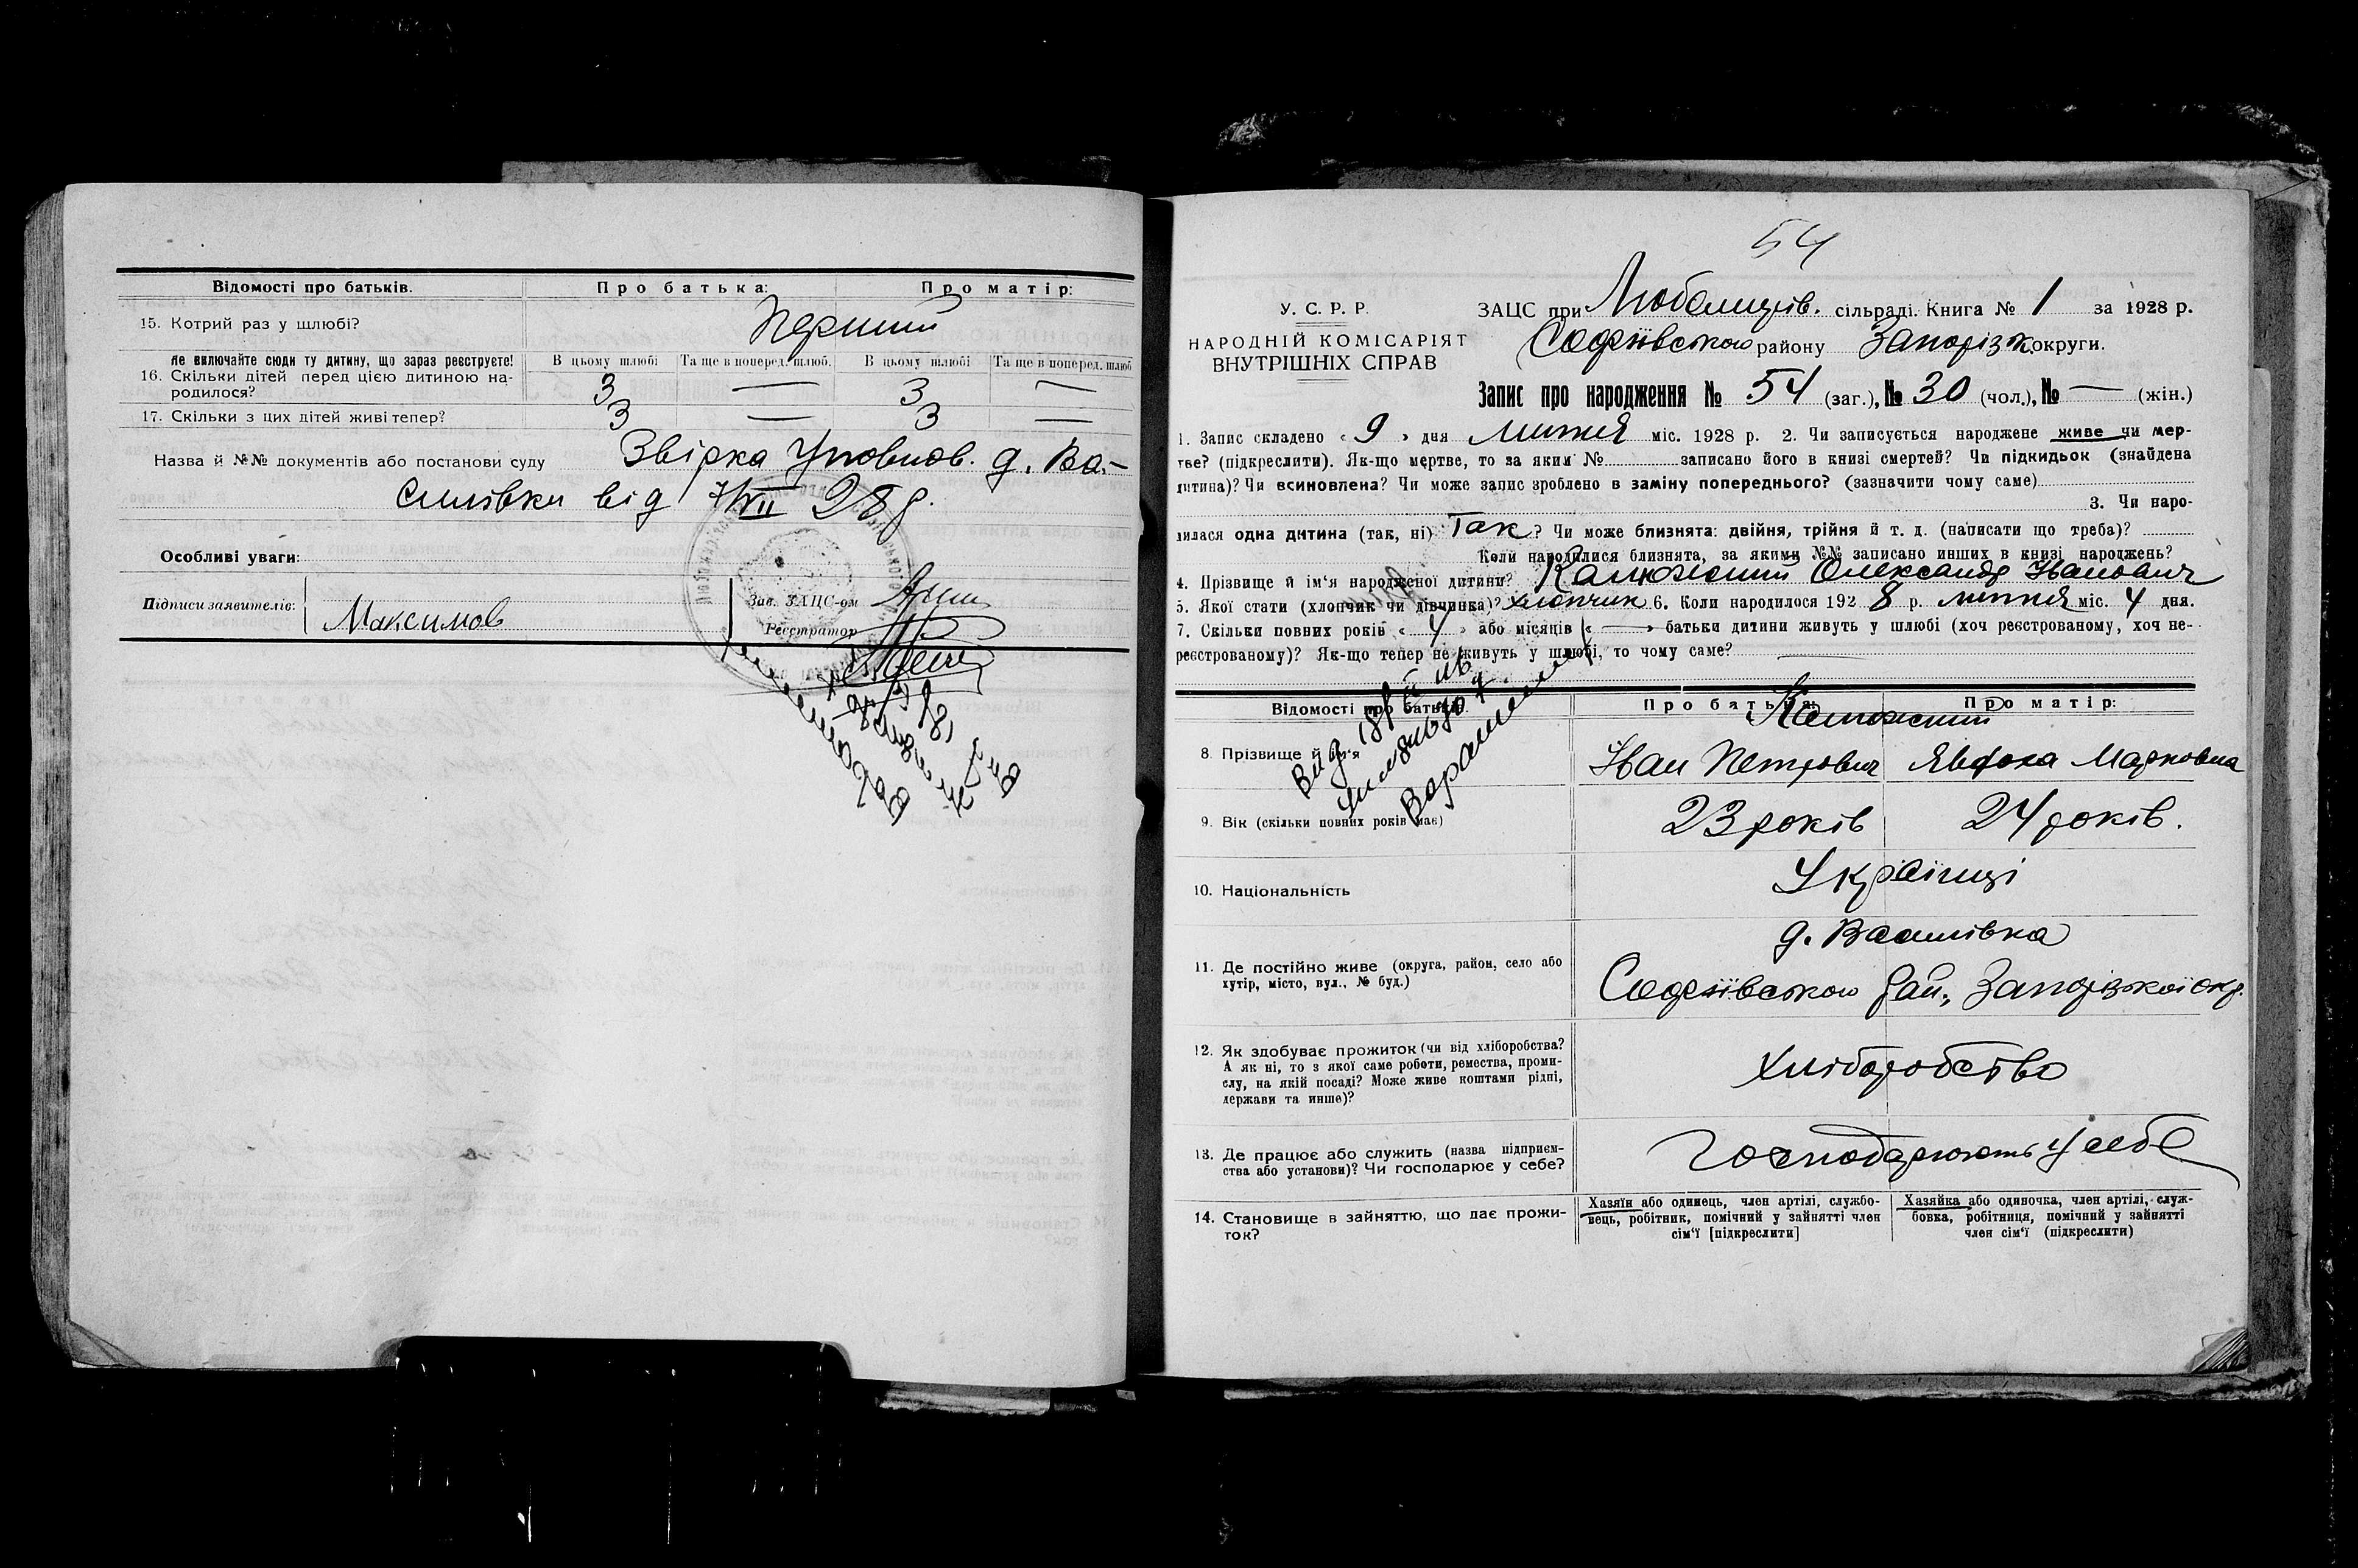 Відомості про батьків. Про батька: Про матір:
15. Котрий раз у шлюбі? Перший
Не включайте сюди ту дитину, що зараз реєструєте! В цьому шлюбі Та ще в поперед. шлюб. В цьому шлюбі Та ще в поперед. шлюб
16. Скільки дітей перед цією дитиною на-
родилося? 3 — 3 —
17. Скільки з цих дітей живі тепер? 3 — 3 —
Назва й №№ документів або постанови суду Звірка Уповнов. д. Ва-
силівки від 7/VII 28 р.
Особливі уваги:
Підписи заявителів: Максимов Зав. ЗАЦС-ом
Реєстратор
54
У. С. Р. Р.
НАРОДНІЙ КОМІСАРІЯТ
ВНУТРІШНІХ СПРАВ
ЗАЦС при Любомирів. сільраді. Книга № 1 за 1928 р.
Софіївського району Запоріжк округи.
Запис про народження № 54 (заг.), № 30 (чол.), № — (жін.)
1. Запис складено «9» дня липня міс. 1928 р. 2. Чи записується народжене живе чи мер-
тве? (підкреслити). Як-що мертве, то за яким № записано його в книзі смертей? Чи підкидьок (знайдена
дитина)? Чи всиновлена? Чи може запис зроблено в заміну попереднього? (зазначити чому саме)
3. Чи наро-
дилася одна дитина (так, ні) Так? Чи може близнята: двійня, трійня й т. д. (написати що треба)?
Коли народилися близнята, за якими №№ записано инших в книзі народжень?
4. Прізвище й ім'я народженої дитини? Калюжний Олександр Іванович
5. Якої стати (хлопчик чи дівчинка)? хлопчик 6. Коли народилося 1928 р. липня міс. 4 дня.
7. Скільки повних років «4» або місяців «—» батьки дитини живуть у шлюбі (хоч реєстрованому, хоч не-
реєстрованому)? Як-що тепер не живуть у шлюбі, то чому саме?
Відомості про батьків. Про батька: Про матір:
Калюжний
8. Прізвище й ім'я Іван Петрович Явдоха Марковна
9. Вік (скільки повних років має) 23 років 24 років.
10. Національність Українці
д. Василівка
11. Де постійно живе (округа, район, село або
хутір, місто, вул., № буд.) Софіївського рай., Запорізької окр.
12. Як здобуває прожиток (чи від хліборобства?
А як ні, то з якої саме роботи, ремества, проми-
слу, на якій посаді? Може живе коштами рідні,
держави та инше)? Хліборобство
13. Де працює або служить (назва підприєм-
ства або установи)? Чи господарює у себе? Господарюють у себе
14. Становище в зайняттю, що дає прожи-
ток?
Хазяїн або одинець, член артілі, службо-
вець, робітник, помічний у зайнятті член
сім'ї [підкреслити]
Хазяйка або одиночка, член артілі, служ-
бовка, робітниця, помічний у зайнятті
член сім'ї (підкреслити)